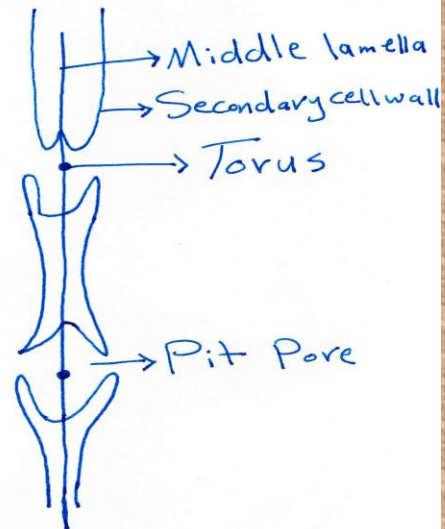 Middle lamella
Secondary cell wall
Torus
Pit Pore